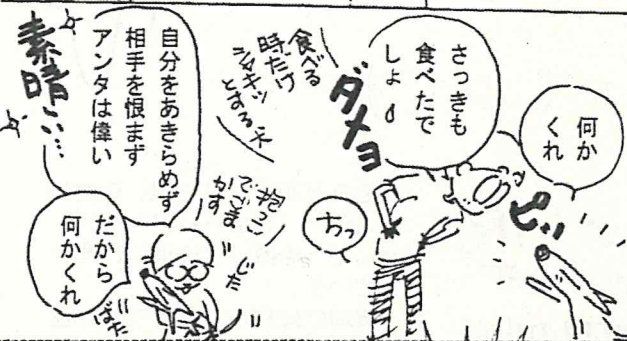 何か
くれ
ピッ
さっきも
食べたで
しょ
ダメヨ
食べる
時だけ
シャキッ
とする犬
ちっ
抱っこ
でごま
かす
じた
ばた
自分をあきらめず
相手を恨まず
アンタは偉い
素晴い…
だから
何かくれ